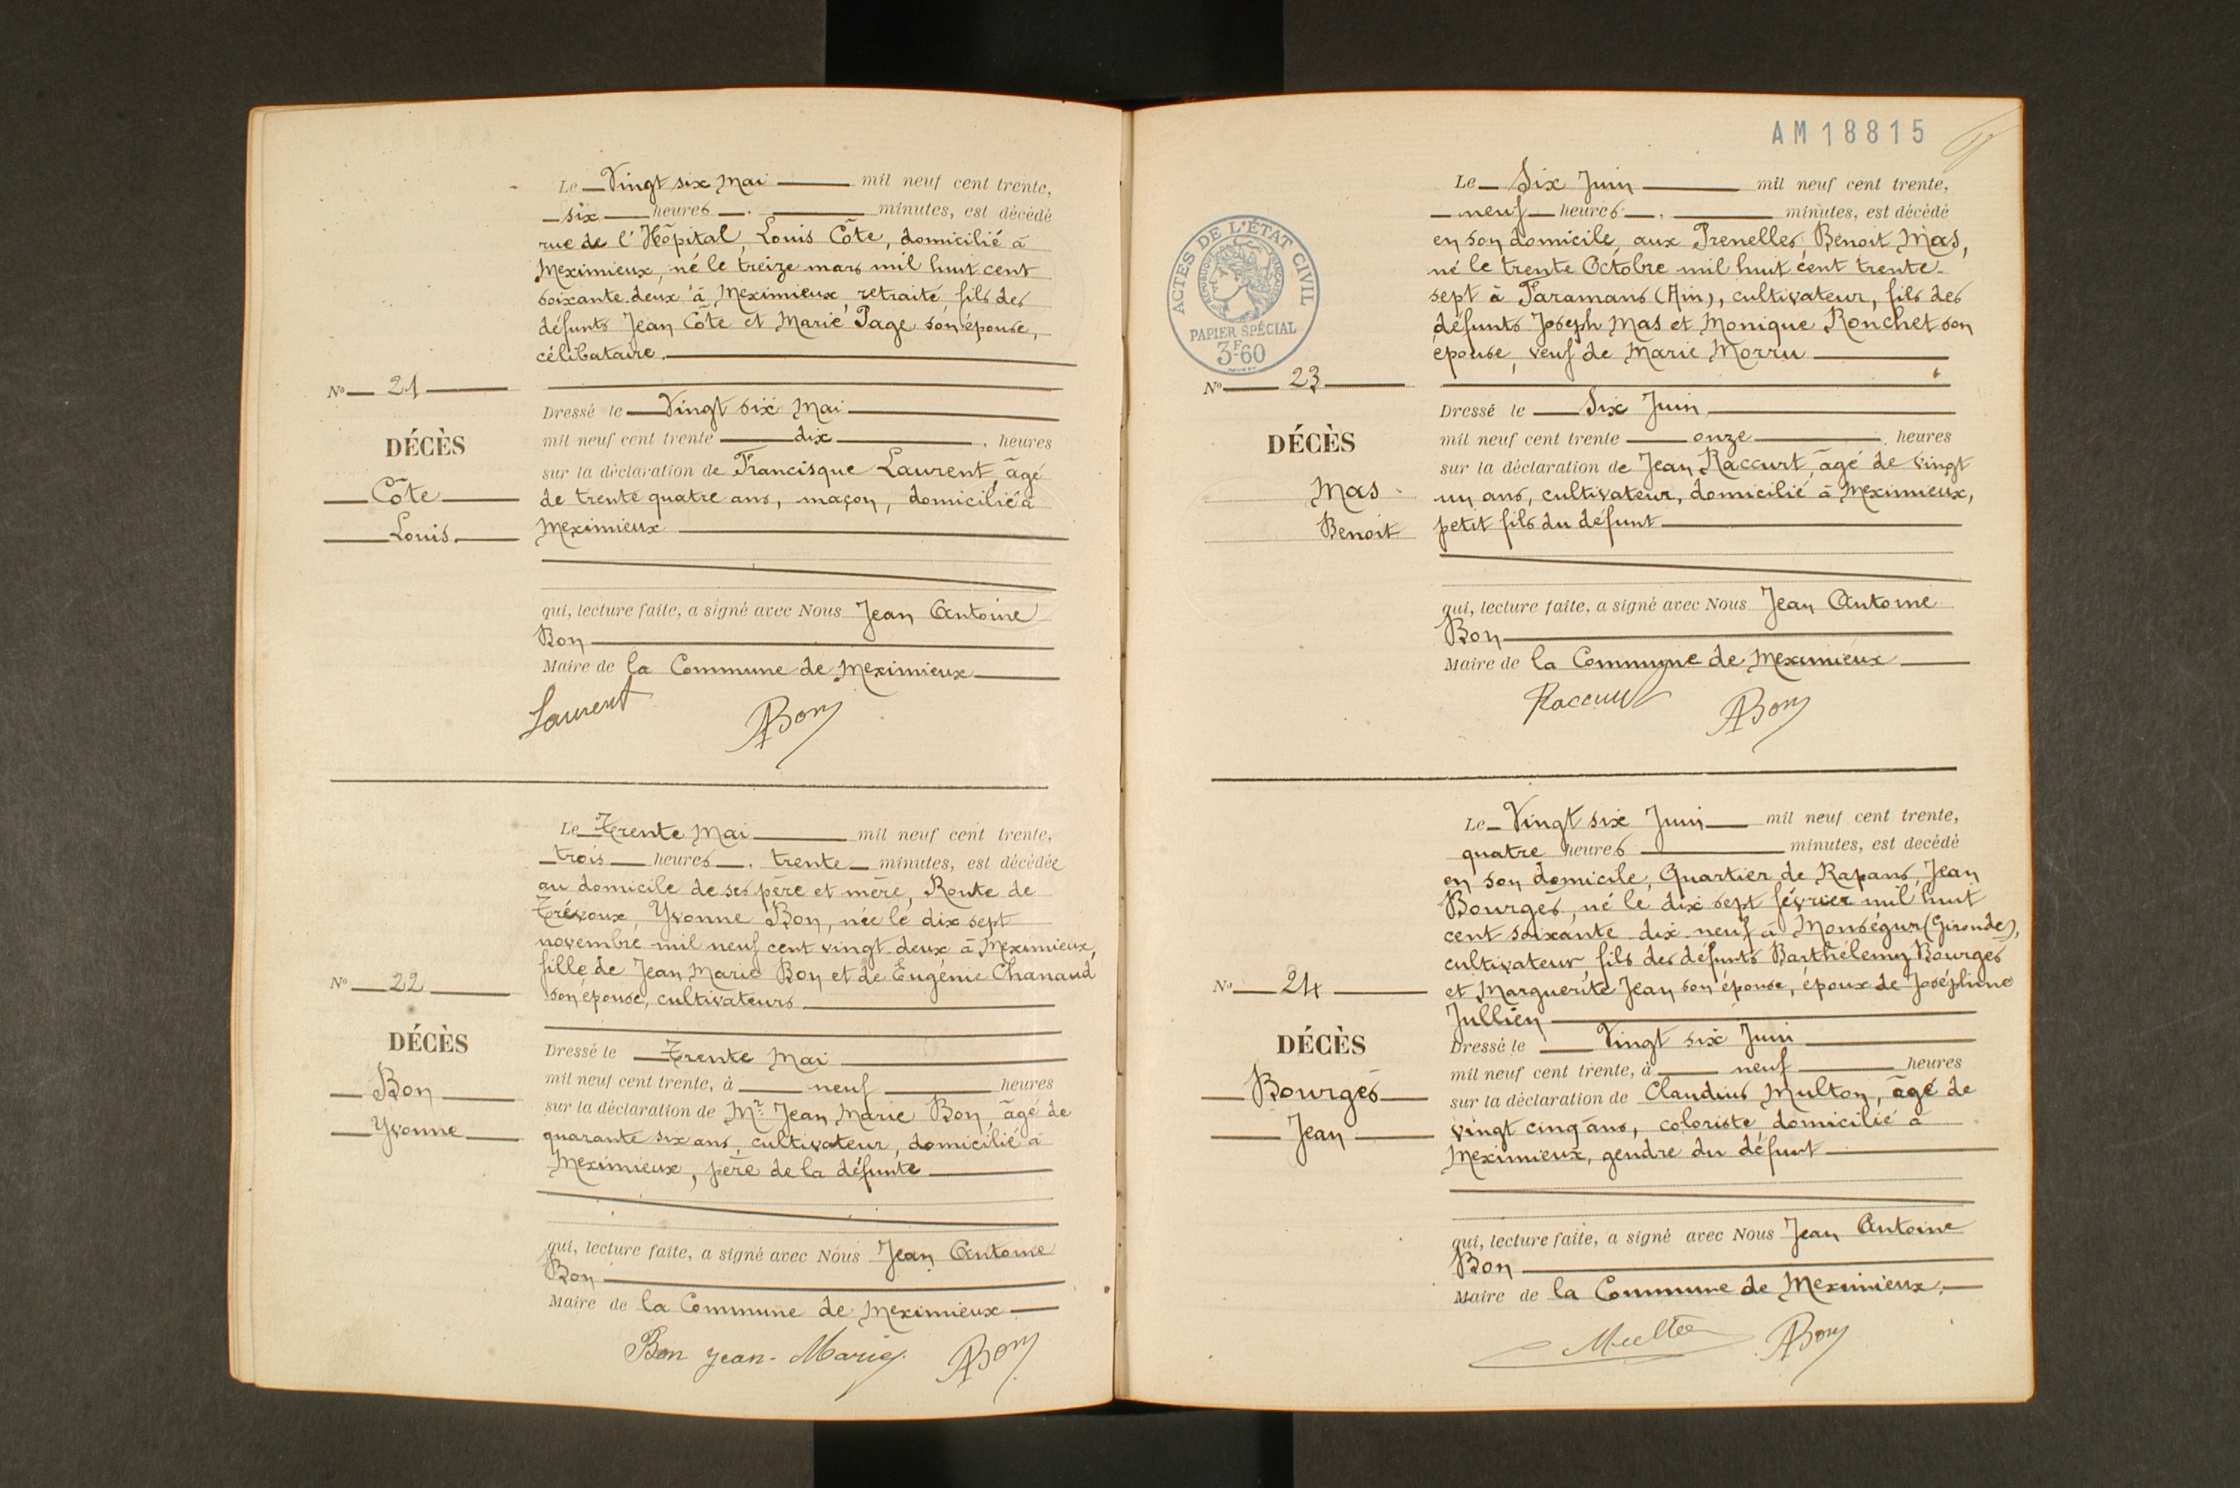 Le Vingt six Mai mil neuf cent trente,
six heures minutes, est décédé
rue de l'Hôpital, Louis Côte, domicilié à
Meximieux, né le treize mars mil huit cent
soixante deux à Meximieux retraité, fils des
défunts Jean Côte et Marie Page son épouse,
célibataire.
No 21
DÉCÈS
Côte
Louis
Dressé le Vingt six Mai
mil neuf cent trente dix heures
sur la déclaration de Francisque Laurent, âgé
de trente quatre ans, maçon, domicilié à
Meximieux
qui, lecture faite, a signé avec Nous Jean Antoine
Bon
Maire de la Commune de Meximieux
Laurent
ABon
Le Trente Mai mil neuf cent trente,
trois heures trente minutes, est décédée
au domicile de ses père et mère, Route de
Trévoux, Yvonne Bon, née le dix sept
novembre mil neuf cent vingt deux à Meximieux,
fille de Jean Marie Bon et de Eugénie Chanaud
son épouse, cultivateurs
No 22
DÉCÈS
Bon
Yvonne
Dressé le Trente Mai
mil neuf cent trente, à neuf heures
sur la déclaration de Mr Jean Marie Bon, âgé de
quarante six ans, cultivateur, domicilié à
Meximieux, père de la défunte
qui, lecture faite, a signé avec Nous Jean Antoine
Bon
Maire de la Commune de Meximieux
Bon Jean-Marie
ABon
AM 18815
ACTES DE L'ÉTAT CIVIL
RÉPUBLIQUE FRANÇAISE
PAPIER SPÉCIAL
3F60
Le Six Juin mil neuf cent trente,
neuf heures minutes, est décédé
en son domicile, aux Prenelles Benoit Mas,
né le trente Octobre mil huit cent trente
sept à Faramans (Ain), cultivateur, fils des
défunts Joseph Mas et Monique Ronchet son
épouse, veuf de Marie Morru
No 23
DÉCÈS
Mas
Benoit
Dressé le Six Juin
mil neuf cent trente onze heures
sur la déclaration de Jean Raccurt, âgé de vingt
un ans, cultivateur, domicilié à Meximieux,
petit fils du défunt
qui, lecture faite, a signé avec Nous Jean Antoine
Bon
Maire de la Commune de Meximieux
Raccurt
ABon
Le Vingt six Juin mil neuf cent trente,
quatre heures minutes, est décédé
en son domicile, Quartier de Rapans, Jean
Bourges, né le dix sept février mil huit
cent soixante dix neuf à Monségur (Gironde),
cultivateur fils des défunts Barthélemy Bourges
et Marguerite Jean son épouse, époux de Joséphine
Jullien
No 24
DÉCÈS
Bourges
Jean
Dressé le Vingt six Juin
mil neuf cent trente, à neuf heures
sur la déclaration de Claudius Multon, âgé de
vingt cinq ans, coloriste, domicilié à
Meximieux, gendre du défunt
qui, lecture faite, a signé avec Nous Jean Antoine
Bon
Maire de la Commune de Meximieux.
Multon
ABon